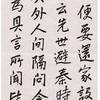 便要還家設
云先世避秦時
外人間隔問今
為具言所聞皆